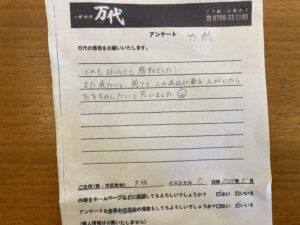 万代
☎0799-52-1140
アンケート
万代の感想をお願いいたします。
どれもおいしくて、感動でした!
また来たいし、周りでこの近辺に来る人がいたら
おすすめしたいと思いました
ご住所(県・市区町村) 大阪 イニシャル O 日時
内容をホームページなどに掲載してもよろしいでしょうか? はい いいえ
アンケートと食事中の写真の掲載もしてもよろしいでしょうか? はい いいえ
(個人情報は公開いたしません)